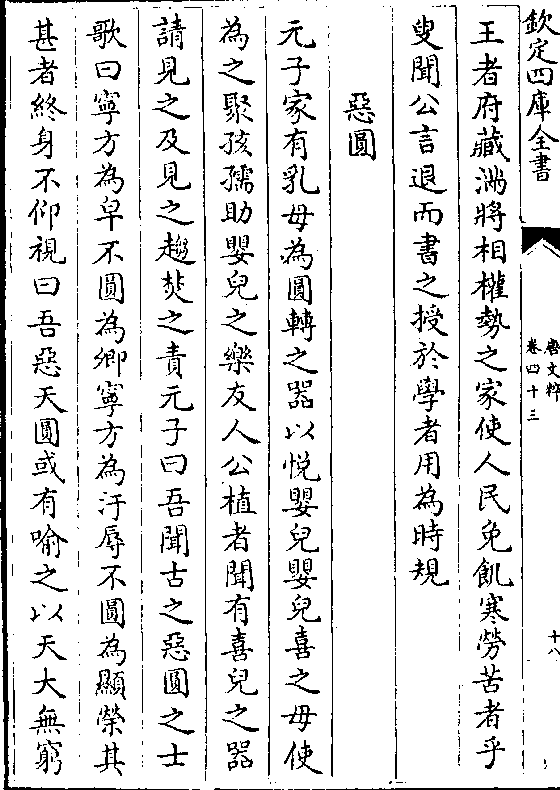 欽定四庫全書
唐文粹
卷四十三
十八
王者府藏滿將相權勢之家使人民免飢寒勞苦者乎
叟聞公言退而書之授於學者用為時規
惡圓
元子家有乳母為圓轉之器以悅嬰兒嬰兒喜之母使
為之聚孩孺助嬰兒之樂友人公植者聞有喜兒之器
請見之及見之趨焚之責元子曰吾聞古之惡圓之士
歌曰寧方為皁不圓為卿寧方為汙辱不圓為顯榮其
甚者終身不仰視曰吾惡天圓或有喻之以天大無窮